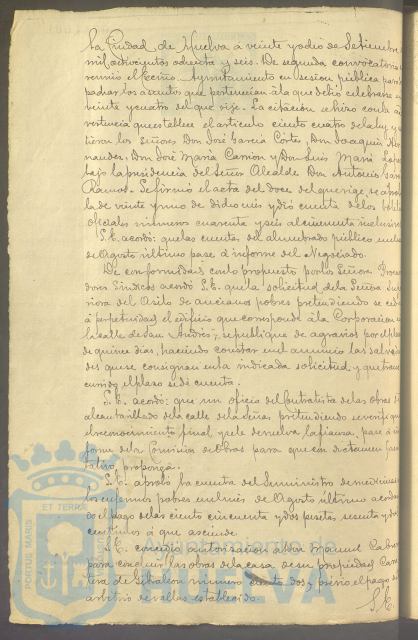 la Ciudad de Huelva á veinte y ocho de Setiembre de
mil ochocientos ochenta y seis. De segunda convocatoria se
reunió el Excmo. Ayuntamiento en sesion pública para
los asuntos que pertenecian á la que debió celebrarse en
veinte y cuatro del que rije. La citacion se hizo con la ad
vertencia que establece el articulo ciento cuatro de la ley y
tieron los señores Don José Garcia Cortés, Don Joaquin Her
nandez, Don José Maria Carrion y Don Luis Maria
bajo la presidencia del Señor Alcalde Don Antonio Garcia
Ramos. Se firmó el acta del doce del que rige, se
la de veinte y uno de dicho mes y dió cuenta de los boleti
oficiales números cuarenta y seis al cincuenta inclusives.
S.E. acordó: que las cuentas del alumbrado público en el mes
de Agosto último pase á informe del Negociado.
De conformidad con lo propuesto por los Señores Procura
dores Sindicos acordó S.E. que la solicitud de la Señora Supe
riora del Asilo de ancianos pobres pretendiendo se ceda
á perpetuidad el edificio que corresponde á la Corporacion en
la calle de San Andrés, se publique de agravios por el plazo
de quince dias, haciendo constar en el anuncio las
des que se consignan en la indicada solicitud, y que trans
currido el plazo se dé cuenta.
S.E. acordó: que un oficio del Contratista de las obras de
alcantarillado de la calle de la pretendiendo se verifique
el reconocimiento final, y se le devuelva la fianza, pase á in
forme de la Comision de Obras para que con dictamen
tativo, proponga.
S.E. aprobó la cuenta del suministro de medicinas
los enfermos pobres en el mes de Agosto último acordan
do el pago de las ciento cincuenta y dos pesetas sesenta y dos
centimos á que asciende.
S.E. concedió autorizacion á Don Manuel
para concluir las obras de la casa de su propiedad Carre
tera de Gibraleon número ciento dos, previo el pago del
arbitrio de vallas establecido.
S.E.
PORTUS MARIS
ET TERRÆ
Ayuntamiento de
HUELVA